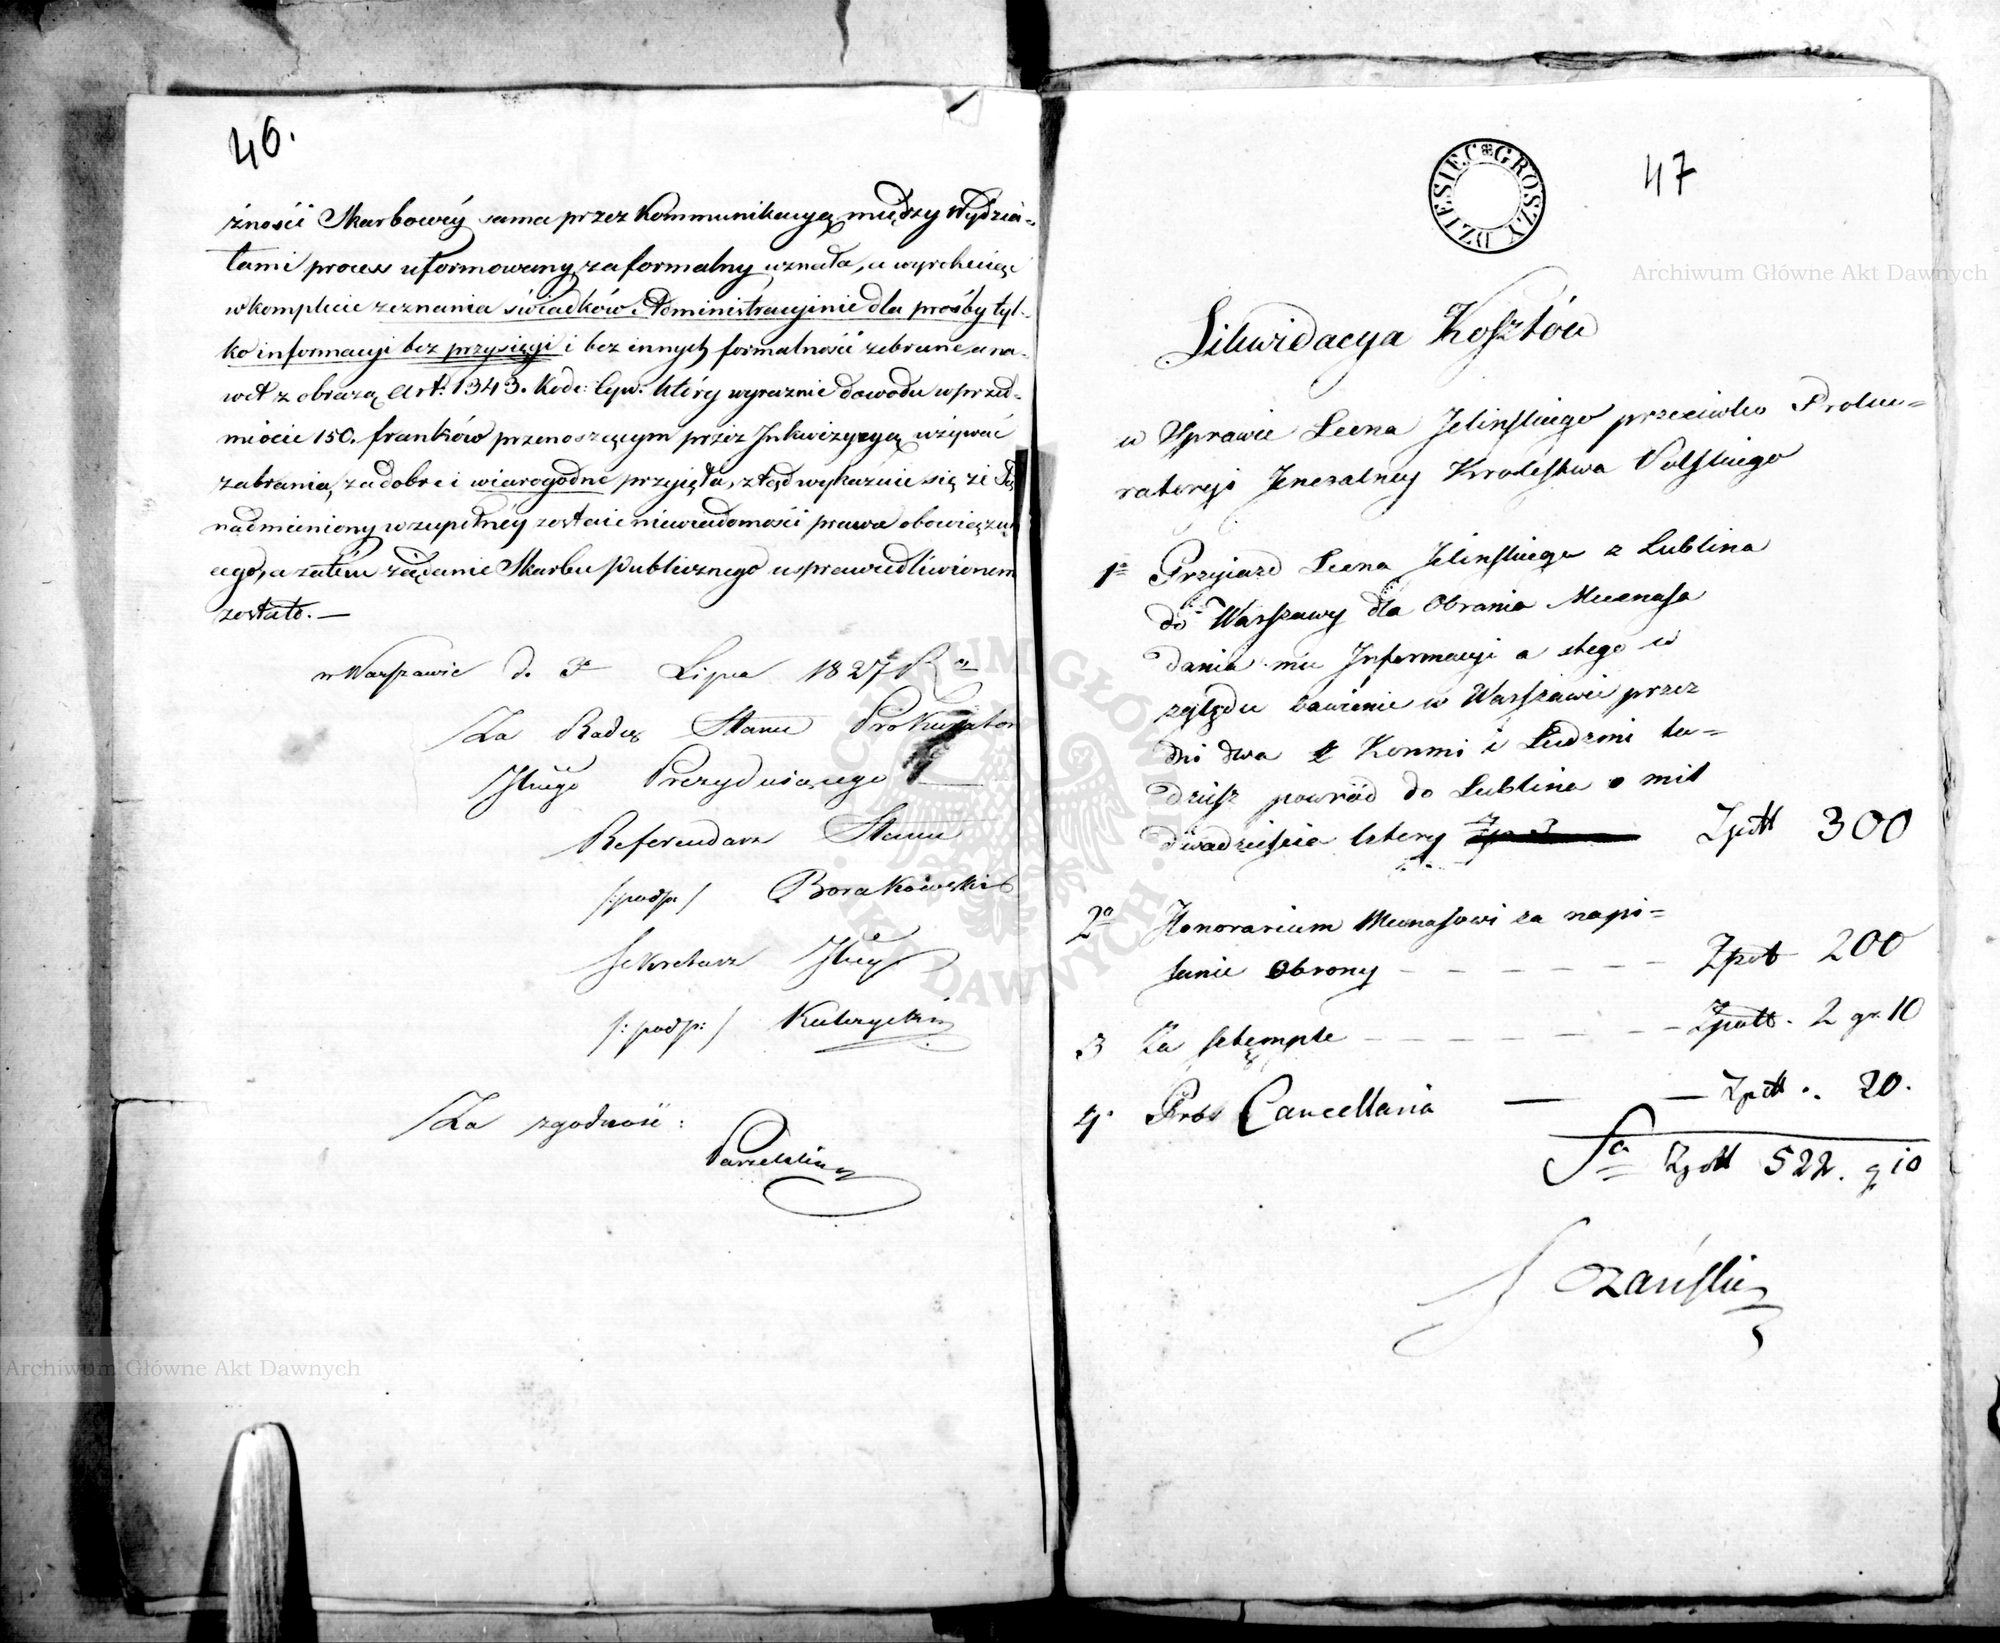 46.
żności Skarbowéy sama przez Kommunikacyą między Wydzia=
łami proces uformowany za formalny uznała, a wyrzekając
w komplecie zeznania świadków Administracyinie dla prośby tyl=
ko informacyi bez przysięgi i bez innych formalności zebrane, a na=
wet z obrazą Art: 1343. Kode: Cyw: który wyraznie dowodu w przed=
miocie 150. franków przenoszącym przez Inkwizycyą używać
zabrania, za dobre i wiarogodne przyięła, ztąd wykazuie się że
nadmieniony w zupełnéy zostaie niewiadomości prawa obowiązu
cego, a zatém żądanie Skarbu Publicznego usprawiedliwionem
zostało. —
w Warszawie d. Lipca 1827 Ra
Za Radcę Stanu Prokurator
Prezyduiącego
Referendarz Stanu
/:podp:/ Borakowski
Sekretarz
/:podp:/
Za zgodność:
DZIESIEC GROSZY
47
Likwidacya Kosztów
w Sprawie Leona Jelińskiego przeciwko Proku=
ratoryi Jeneralney Krolestwa Polskiego
1o Przyiazd Leona Jelińskiego z Lublina
do Warszawy dla Obrania Mecenasa
dania mu Informacyi a stego w
zględu bawienie w Warszawie przez
dni dwa z Konmi i Ludzmi tu=
dziesz powród do Lublina o mil
dwadzieścia cztery Złott 300
2o Honorarium Mecenasowi za napi=
sanie Obrony – – – – – – Złott 200
3 Za sztęmple – – – – – – Złott. 2 gr. 10
4. Pro Cancellaria — — Złott. 20.
Sa Złott 522. g 10
Archiwum Główne Akt Dawnych
ARCHIWUM GŁÓWNE AKT DAWNYCH
Archiwum Główne Akt Dawnych